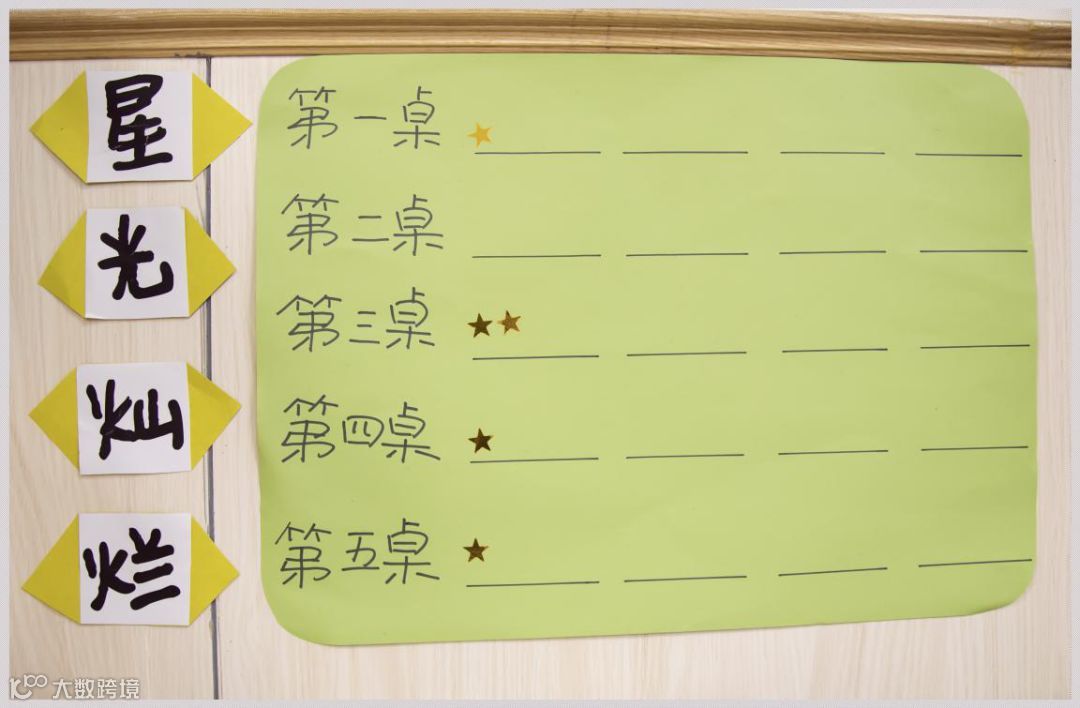 星光灿烂
第一桌
第二桌
第三桌
第四桌
第五桌
大数跨境